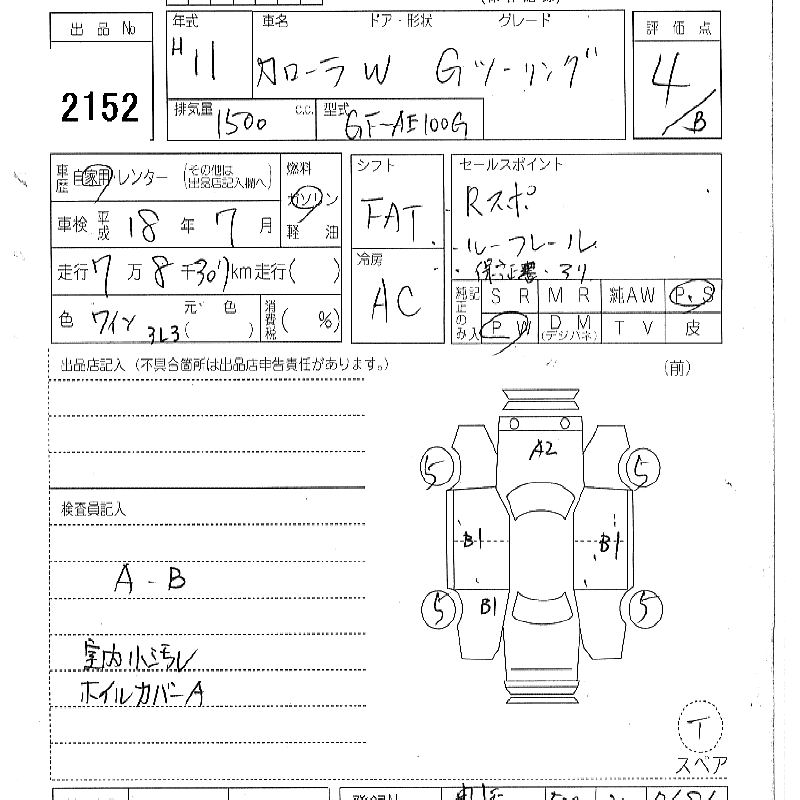 出品 No
2152
年式 車名 ドア・形状 グレード
H 11 カローラW Gツーリング
排気量 1500 c.c. 型式 GF-AE100G
評価点
4/B
車歴 自家用・レンター (その他は出品店記入欄へ)
燃料 ガソリン 軽油
車検 平成 18 年 7 月
走行 7 万 8 千 307 km 走行( )
色 ワイン 3L3 元色( )
消費税 ( %)
シフト
FAT
冷房
AC
セールスポイント
Rスポ
・ルーフレール
純正のみ記入 SR MR 純AW P.S
PW DM (デジパネ) TV 皮
出品店記入 (不具合箇所は出品店申告責任があります。)
(前)
A2
5 5
B1 B1
5 B1 5
検査員記入
A-B
室内小汚レ
ホイルカバーA
T
スペア